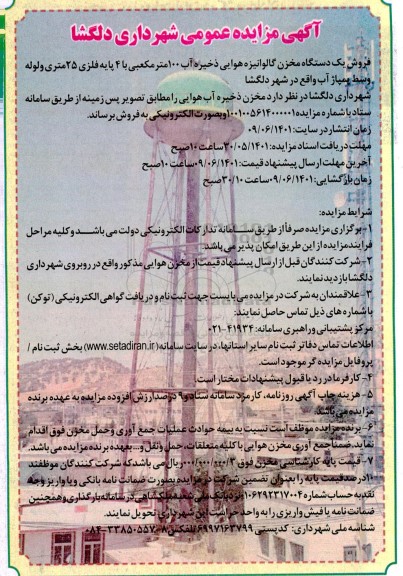 آگهی مزایده عمومی شهرداری دلگشا
فروش یک دستگاه مخزن گالوانیزه هوایی ذخیره آب ۱۰۰متر مکعبی با ۴ پایه فلزی ۲۵متری و لوله
وسط پمپاژ آب واقع در شهر دلگشا
شهرداری دلگشا در نظر دارد مخزن ذخیره آب هوایی را مطابق تصویر پس زمینه از طریق سامانه
ستاد با شماره مزایده ۱۰۰۱۰۰۵۶۱۴۰۰۰۰۰۱ و بصورت الکترونیکی به فروش برساند.
زمان انتشار در سایت: ۰۹/۰۶/۱۴۰۱
مهلت دریافت اسناد مزایده: ۳۰/۰۵/۱۴۰۱ ساعت ۱۰صبح
آخرین مهلت ارسال پیشنهاد قیمت: ۰۹/۰۶/۱۴۰۱ ساعت ۱۰صبح
زمان بازگشایی: ۰۹/۰۶/۱۴۰۱ ساعت ۱۰/۳۰صبح
شرایط مزایده:
۱- برگزاری مزایده صرفاً از طریق سامانه تدارکات الکترونیکی دولت می باشد و کلیه مراحل
فرایند مزایده از این طریق امکان پذیر می باشد.
۲- شرکت کنندگان قبل از ارسال پیشنهاد قیمت از مخزن هوایی مذکور واقع در روبروی شهرداری
دلگشا بازدید نمایند.
۳- علاقمندان به شرکت در مزایده می بایست جهت ثبت نام و دریافت گواهی الکترونیکی (توکن)
با شماره های ذیل تماس حاصل نمایند:
مرکز پشتیبانی و راهبری سامانه: ۴۱۹۳۴-۰۲۱
اطلاعات تماس دفاتر ثبت نام سایر استانها، در سایت سامانه (www.setadiran.ir) بخش ثبت نام /
پروفایل مزایده گر موجود است.
۴- کارفرما در رد یا قبول پیشنهادات مختار است.
۵- هزینه چاپ آگهی روزنامه، کارمزد سامانه ستاد و ۹ درصد ارزش افزوده مزایده به عهده برنده
مزایده می باشد.
۶- برنده مزایده موظف است نسبت به بیمه حوادث عملیات جمع آوری و حمل مخزن فوق اقدام
نماید. ضمنا جمع آوری مخزن هوایی با کلیه متعلقات، حمل و نقل و... بعهده برنده مزایده می باشد.
۷- قیمت پایه کارشناسی مخزن فوق ریال می باشد که شرکت کنندگان موظفند
۱۰درصد قیمت پایه را بعنوان تضمین شرکت در مزایده بصورت ضمانت نامه بانکی و یا واریز وجه
نقد به حساب شماره نزد بانک ملی شعبه در سامانه بارگذاری و همچنین
ضمانت نامه یا فیش واریزی را به واحد حراست این شهرداری تحویل نمایند.
شناسه ملی شهرداری: کدپستی ۶۹۹۷۱۶۳۷۹۹ تلفکس ۸-۳۳۸۵۰۵۵۷-۰۸۴